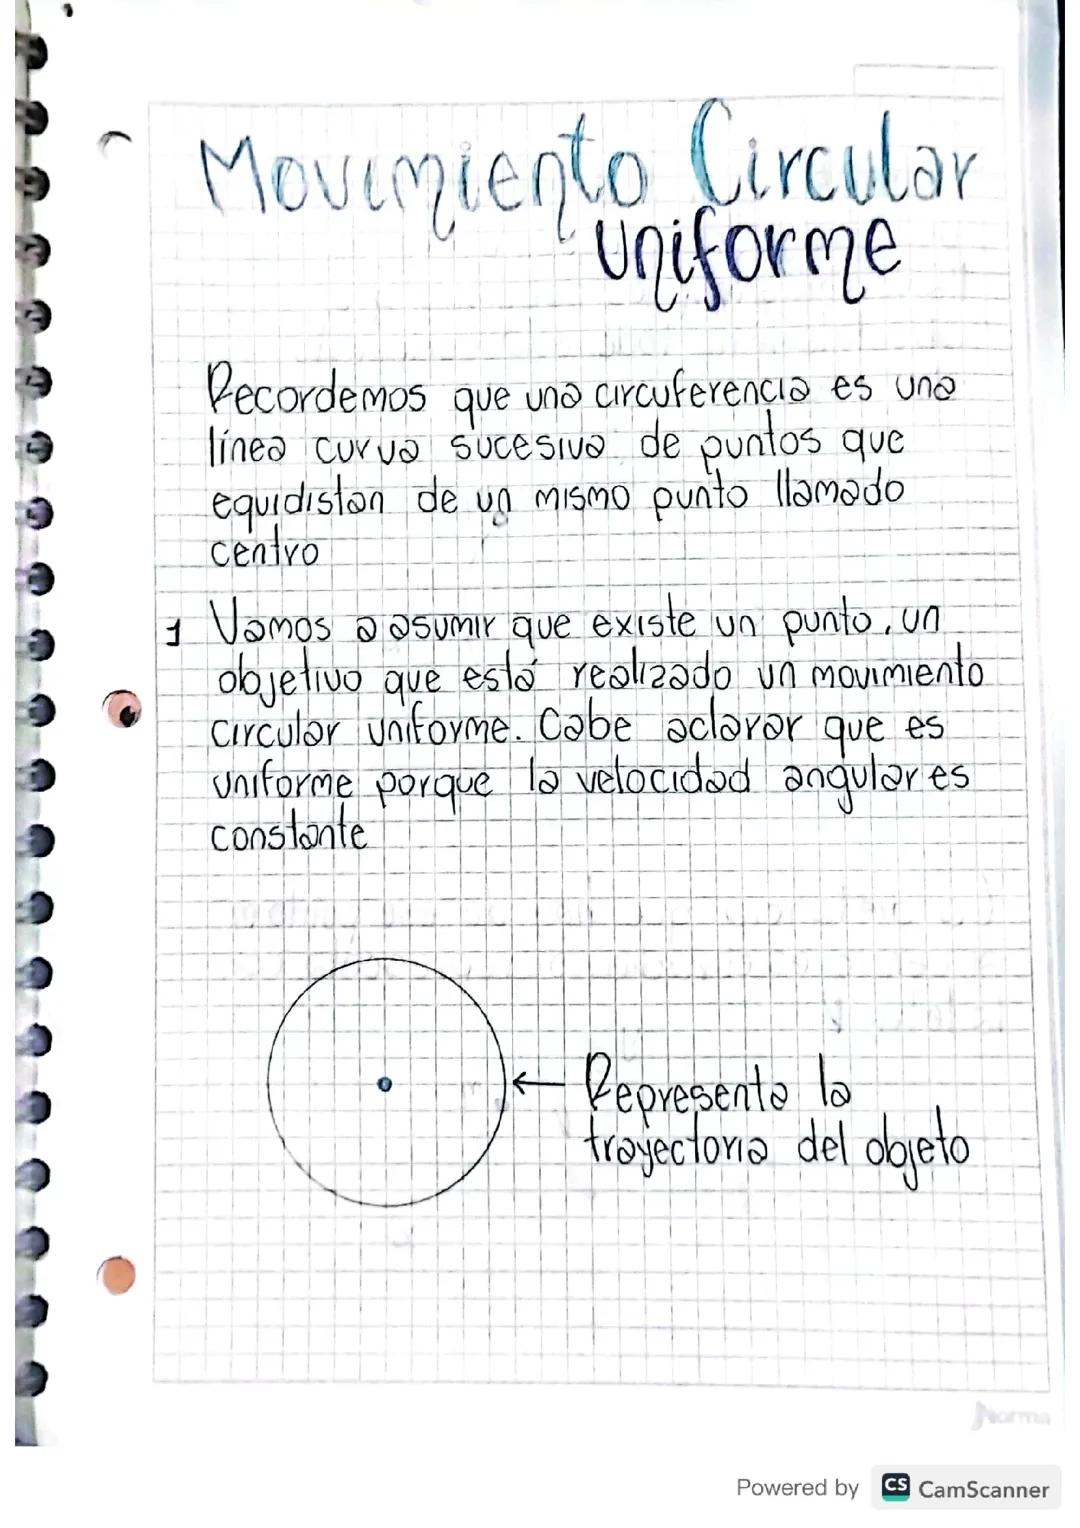 Movimiento Circular
uniforme
Recordemos que una circuferencia es una
línea curva sucesiva de puntos que
equidistan de un mismo punto llamado
centro
1 Vamos a asumir que existe un punto, un
objetivo que está realizado un movimiento
circular uniforme. Cabe aclarar que es
uniforme porque la velocidad angular es
constante
← Representa la
trayectoria del objeto
Norma
Powered by CS CamScanner